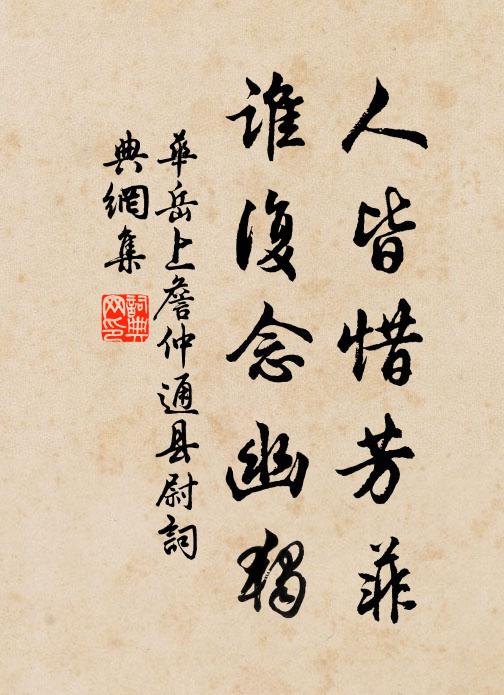 人皆惜芳菲
誰復念幽獨
華岳上詹仲通县尉詞
典網集
詞典网印